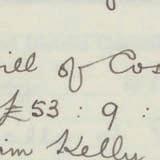 ill of Cos
£53 : 9 :
im Kelly